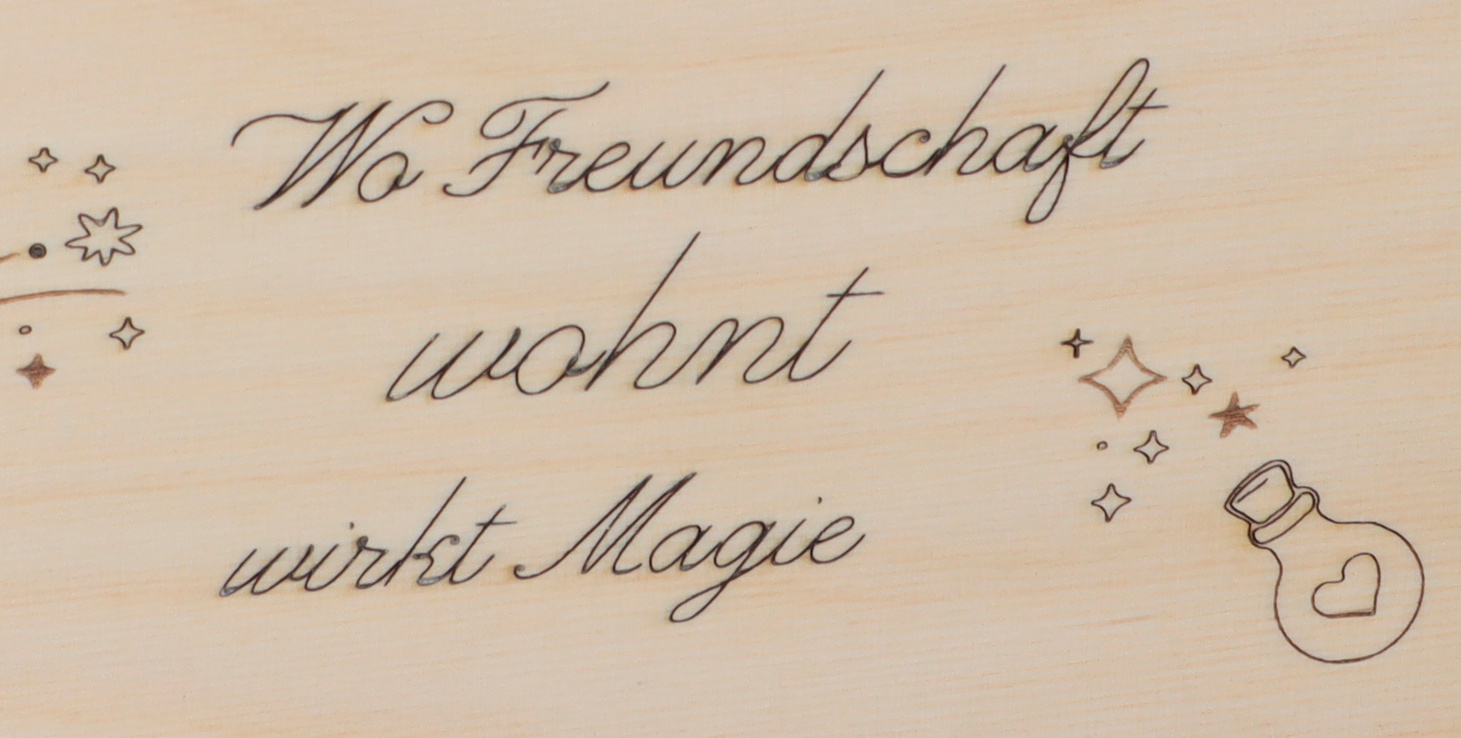 Wo Freundschaft
wohnt
wirkt Magie